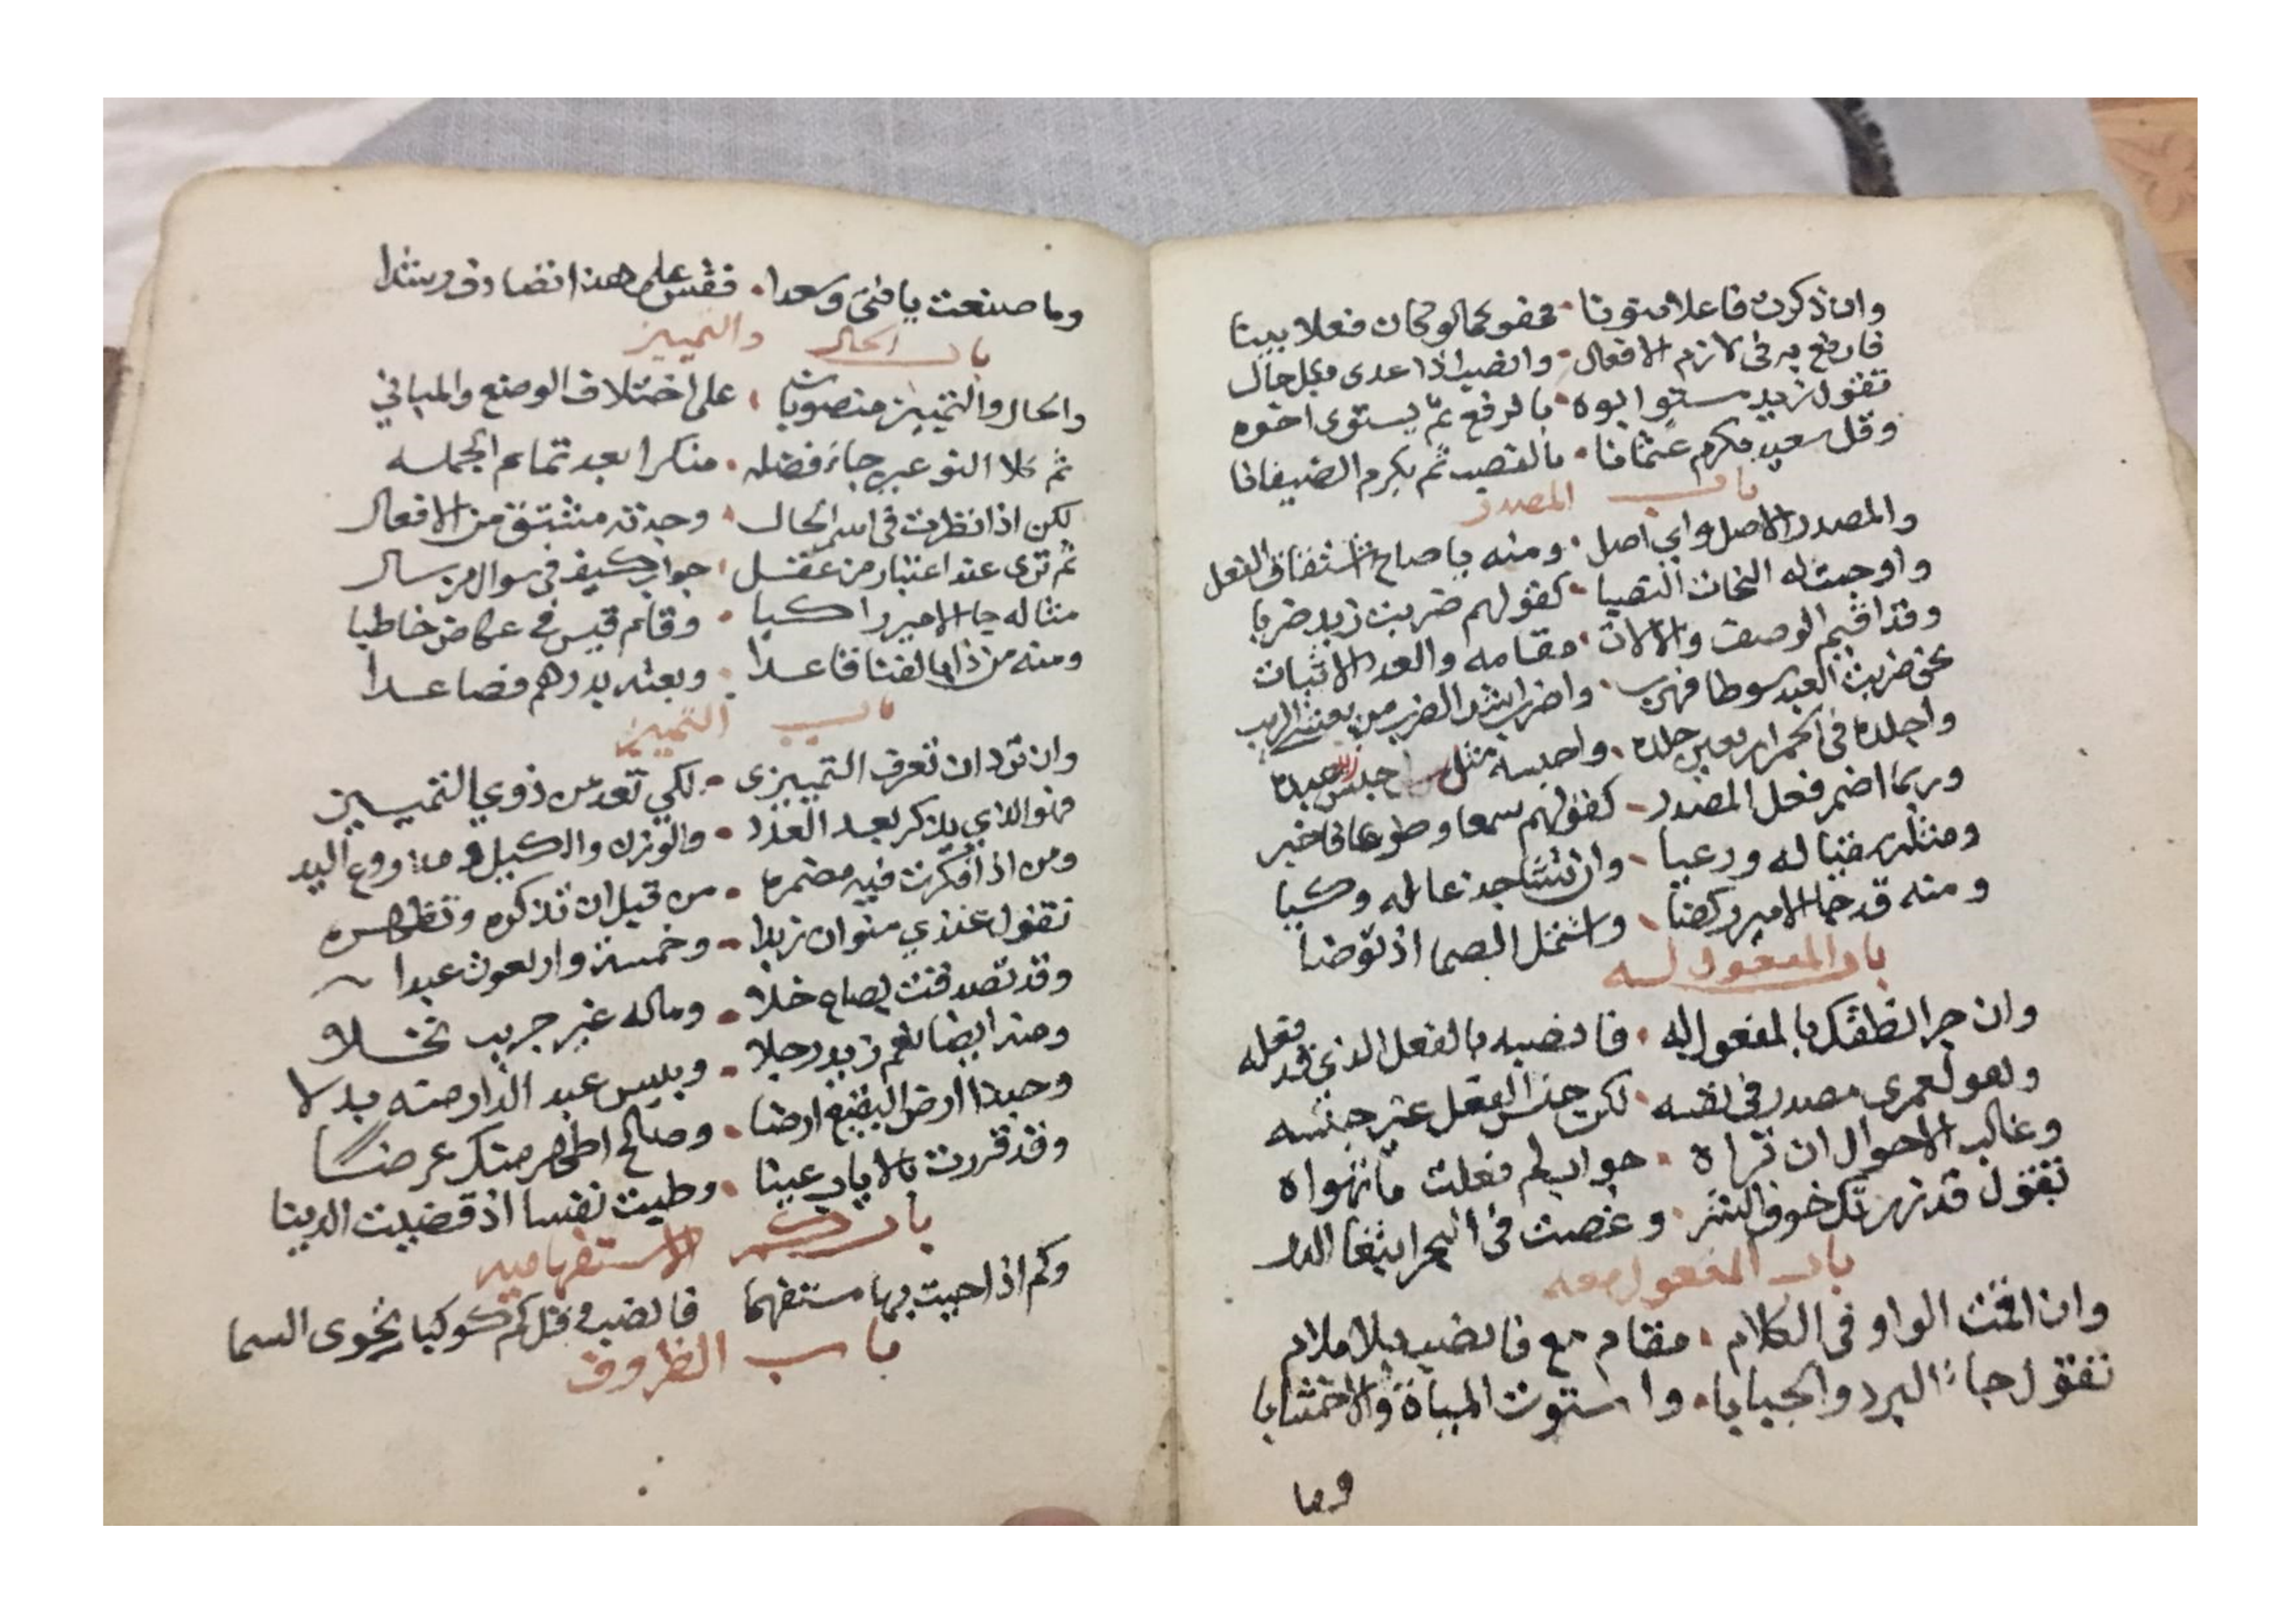 وان ذكرت فاعلا منونا • فهو كما لو كان فعلا بينا
فارفع به في لازم الافعال • وانصب اذا عدى بكل حال
تقول زيد مستو ابوه • بالرفع ثم يستوى اخوه
وقل سعيد مكرم عثمانا • بالنصب ثم يكرم الضيفانا
باب المصدر
والمصدر الاصل واي اصل • ومنه يا صاح اشتقاق الفعل
واوجبت له النحات النصبا • كقولهم ضربت زيد ضربا
وقد اقيم الوصف والالات • مقامه والعدد الاثبات
نحو ضربت العبد سوطا فهرب • واضرب اشد الضرب من يغشى الريب
واجلده في الخمر اربعين جلده • واحبسه مثل حبس عبده
وربما اضمر فعل المصدر • كقولهم سمعا وطوعا فاخبر
ومثله سقيا له ورعيا • وان تشا جدعا له وكيا
ومنه قد جا الامير ركضا • واشتمل الصما اذ توضا
باب المفعول له
وان جرا نطقك بالمفعول له • فانصبه بالفعل الذي قد فعله
وهو لعمرى مصدر في نفسه • لكن جنس الفعل غير جنسه
وغالب الاحوال ان تراه • جواب لم فعلت ما تهواه
تقول قد زرتك خوف الشر • وغصت في البحر ابتغا الدر
باب المفعول معه
وان اقمت الواو في الكلام • مقام مع فانصب بلا ملام
تقول جاء البرد والجبابا • واستوت المياة والاخشابا
وما
وما صنعت يا فتى وسعدا • فقس على هذا تصادف رشدا
باب الحال والتمييز
والحال والتمييز منصوبان • على اختلاف الوضع والمباني
ثم كلا النوعين جاء فضله • منكرا بعد تمام الجمله
لكن اذا نظرت في اسم الحال • وجدته مشتق من الافعال
ثم ترى عند اعتبار من عقل • جواب كيف في سوال من سال
مثاله جا الامير راكبا • وقام قيس في عكاض خاطبا
ومنه من ذا بالفنا قاعدا • وبعته بدرهم فصاعدا
باب التمييز
وان ترد ان تعرف التمييزى • لكي تعد من ذوي التمييز
فهو الذي يذكر بعد العدد • والوزن والكيل ومذروع اليد
ومن اذا فكرت فيه مضمره • من قبل ان تذكره وتظهره
تقول عندي منوان زبدا • وخمسة واربعون عبدا
وقد تصدقت بصاع خلا • وماله غير جريب نخلا
ومنه ايضا نعم زيد رجلا • وبيس عبد الدار منه بدلا
وحبذا ارض البقيع ارضا • وصالح اطهر منك عرضا
وقد قررت بالاياب عينا • وطبت نفسا اذ قضيت الدينا
باب كم الاستفهاميه
وكم اذا جيت بها مستفهما فانصب وقل كم كوكبا يحوى السما
باب الظروف